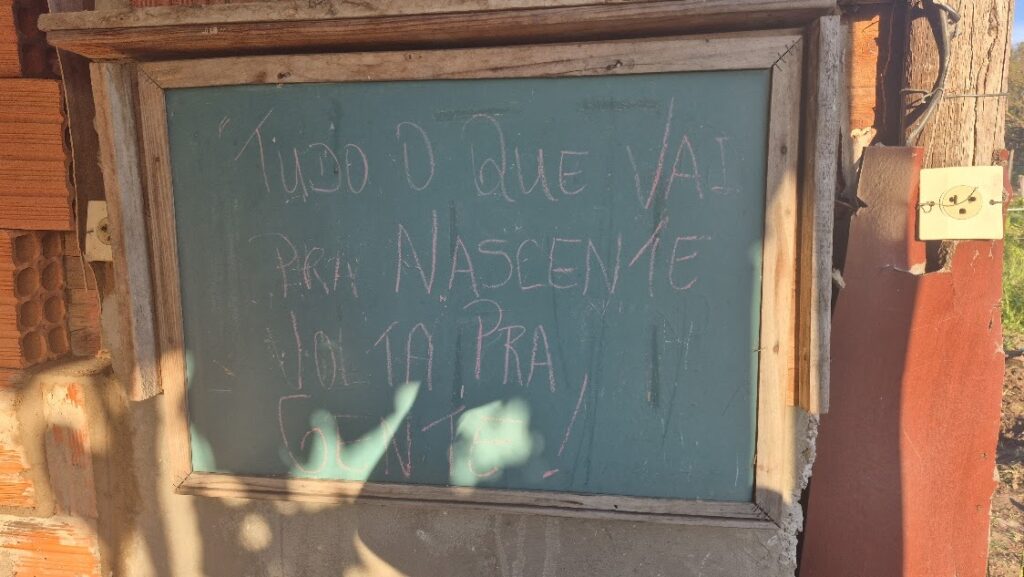 "TUDO O QUE VAI
PRA NASCENTE
VOLTA PRA
GENTE!